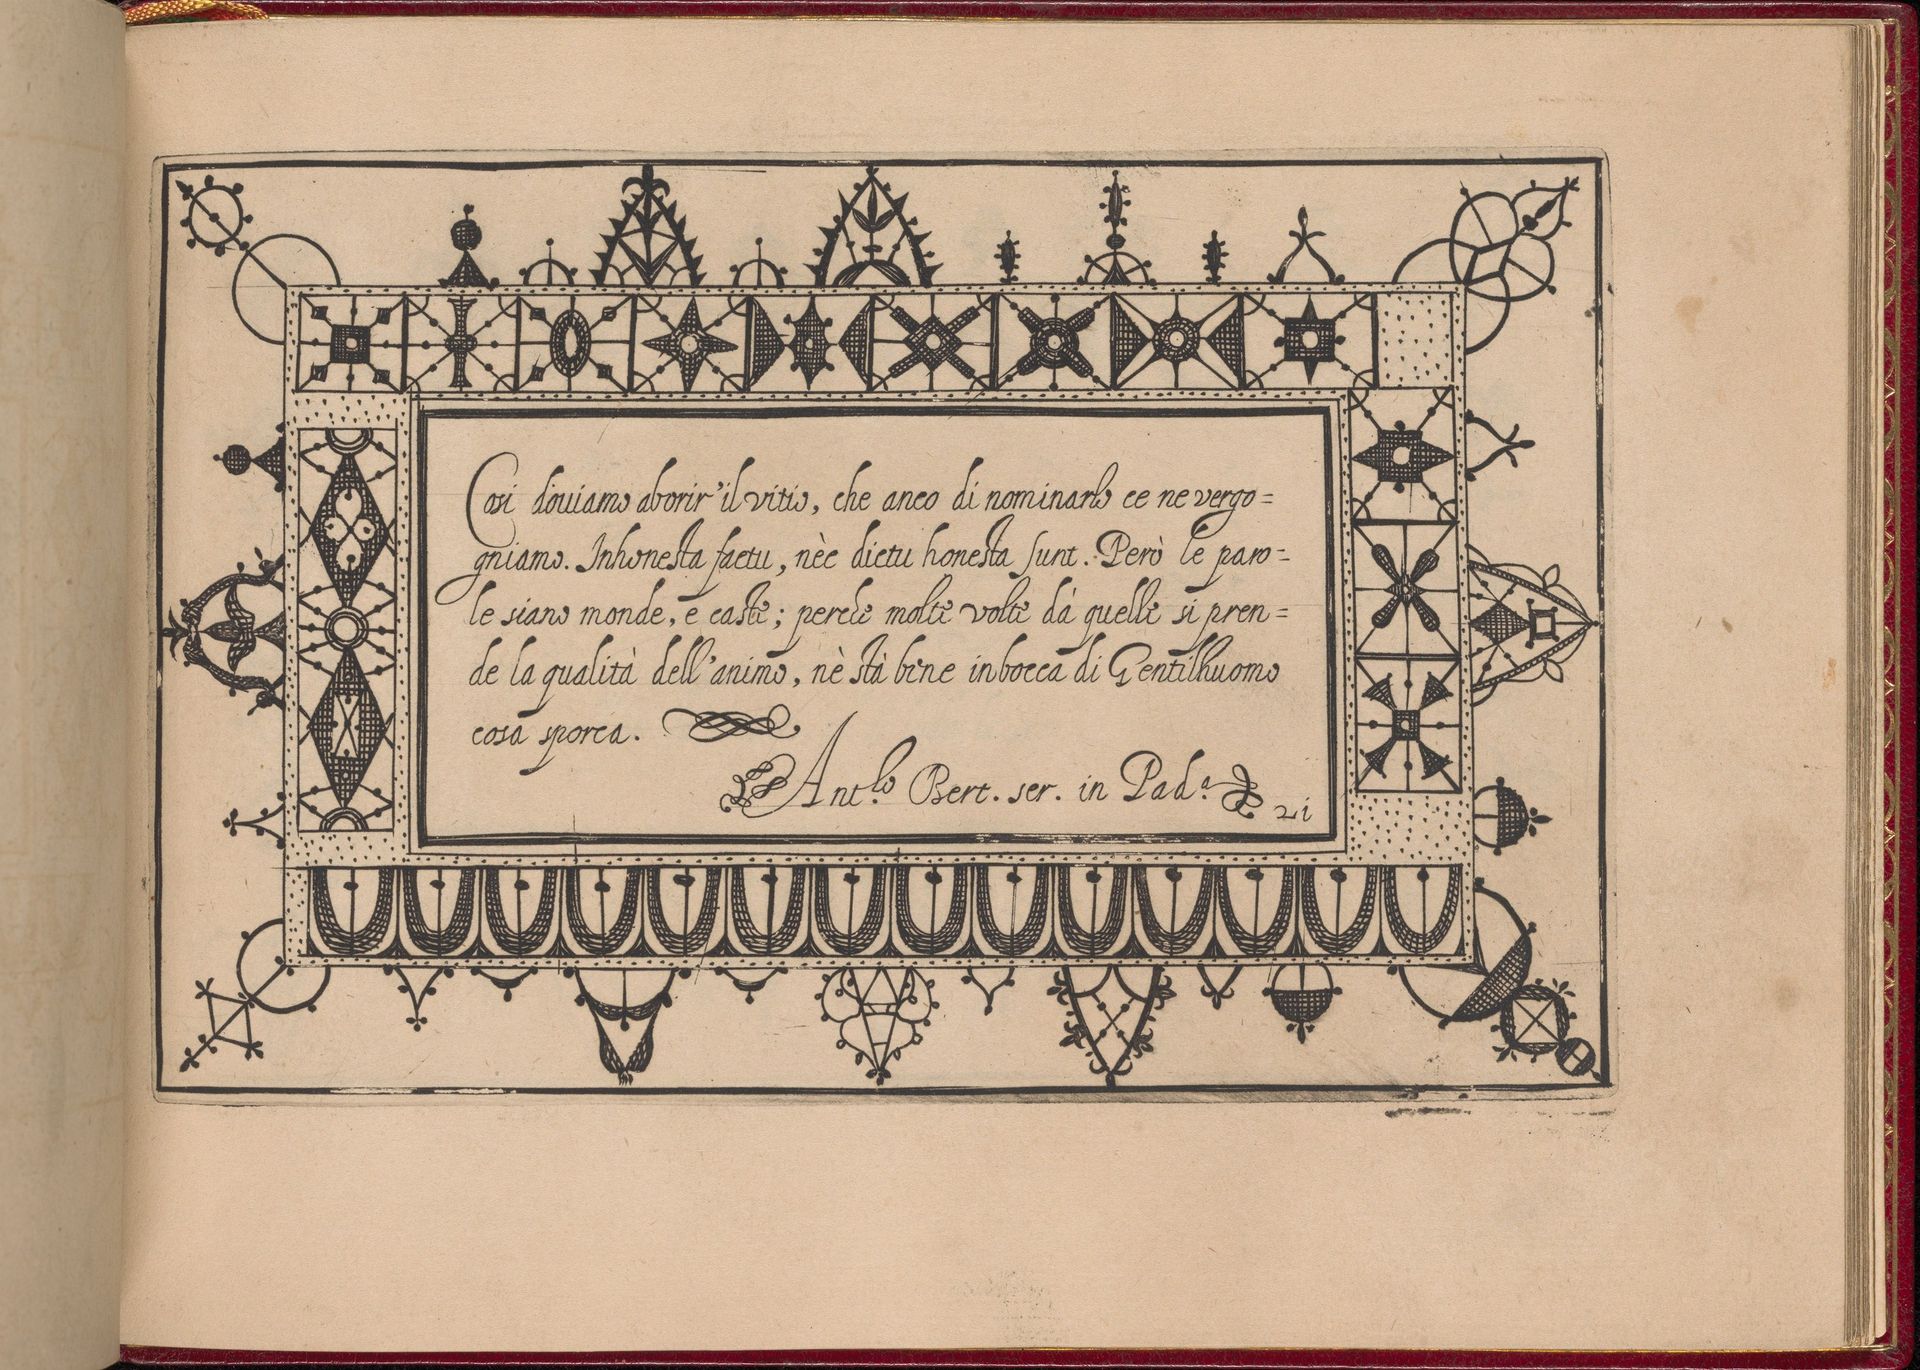 Cosi douiamo aborir' il vitio, che anco di nominarlo ce ne vergo=
gniamo. Inhonesta factu, nèc dictu honesta sunt. Però le paro=
le siano monde, e caste; perche molte volte dà quelle si pren=
de la qualità dell'animo, nè stà bene in bocca di Gentilhuomo
cosa sporca.
Ant.lo Bert. ser. in Pad.a
21